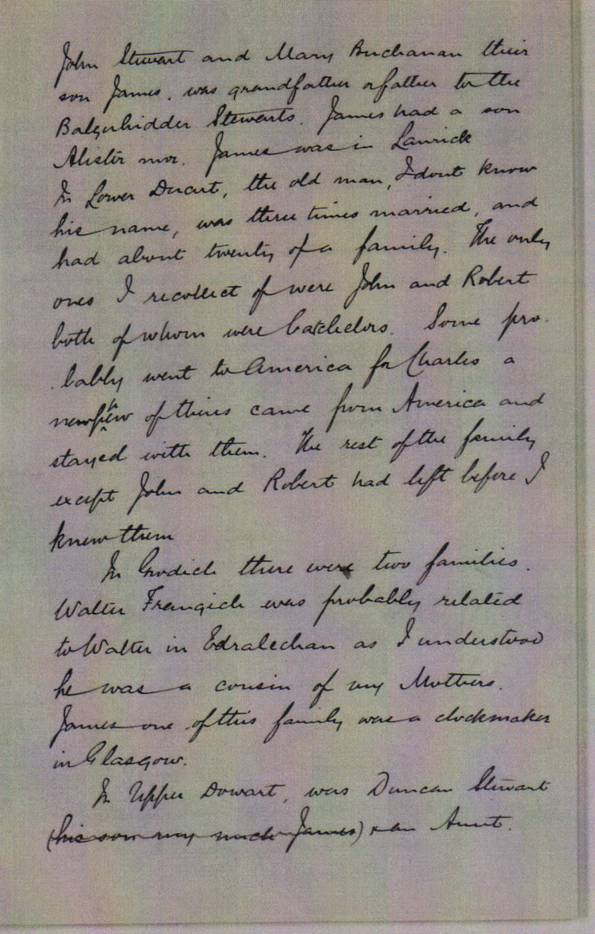 John Stewart and Mary Buchanan their
son James. was grandfather or father to the
Balquhidder Stewarts. James had a son
Alister mor. James was in Lanrick
In Lower Ducart, the old man, I dont know
his name, was three times married, and
had about twenty of a family. The only
ones I recollect of were John and Robert
both of whom were batchelors. Some pro-
bably went to America for Charles a
newphew of theirs came from America and
stayed with them. The rest of the family
except John and Robert had left before I
knew them
In there were two families.
Walter was probably related
to Walter in Edralechan as I understood
he was a cousin of my Mothers.
James one of this family was a clockmaker
in Glasgow.
In Upper Dowart, was Duncan Stewart
(his son my uncle James) & an Aunt.